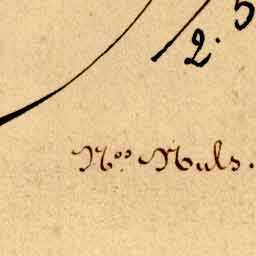 2. 5
N.os Muls.